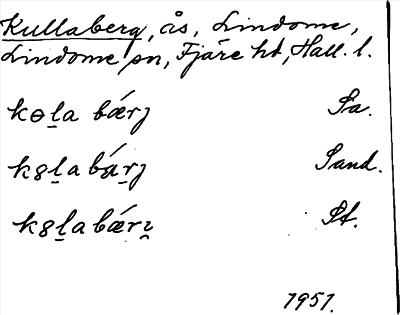 Kullaberg, ås, Lindome,
Lindome sn, Fjäre hd, Hall. l.
kɵl̠a bǽrj Sa.
k8l̠abǽr̠j Sand.
k8l̠abǽrı̮ St.
1951.